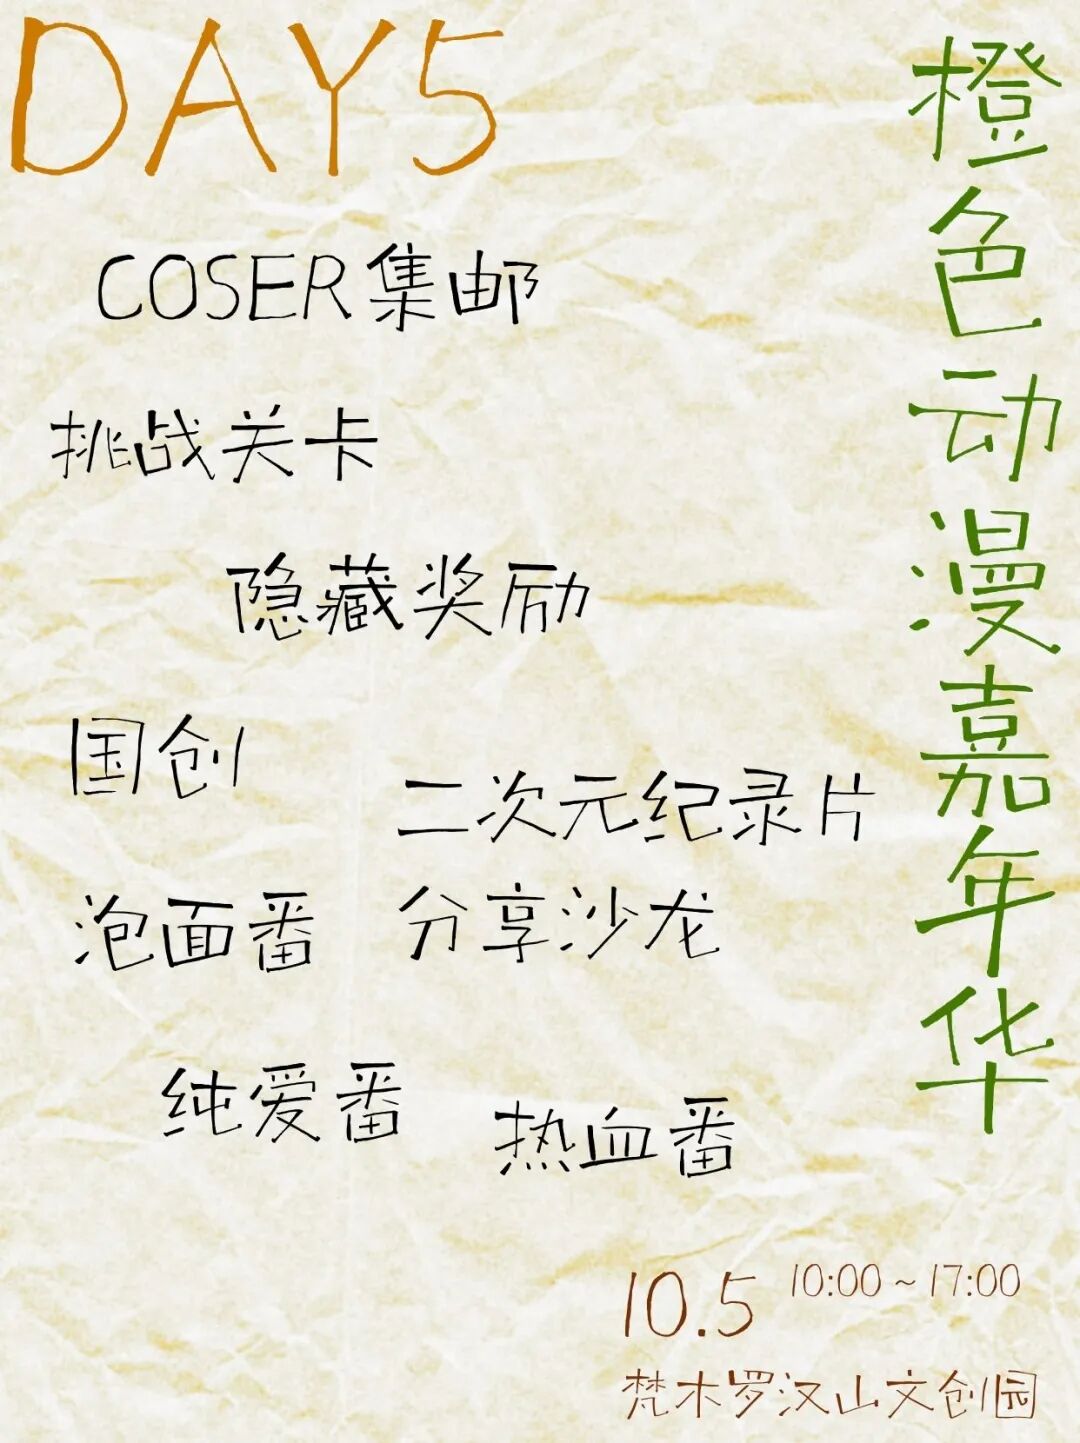 DAY5
橙色动漫嘉年华
COSER集邮
挑战关卡
隐藏奖励
国创
二次元纪录片
泡面番
分享沙龙
纯爱番
热血番
10.5
10:00~17:00
梵木罗汉山文创园